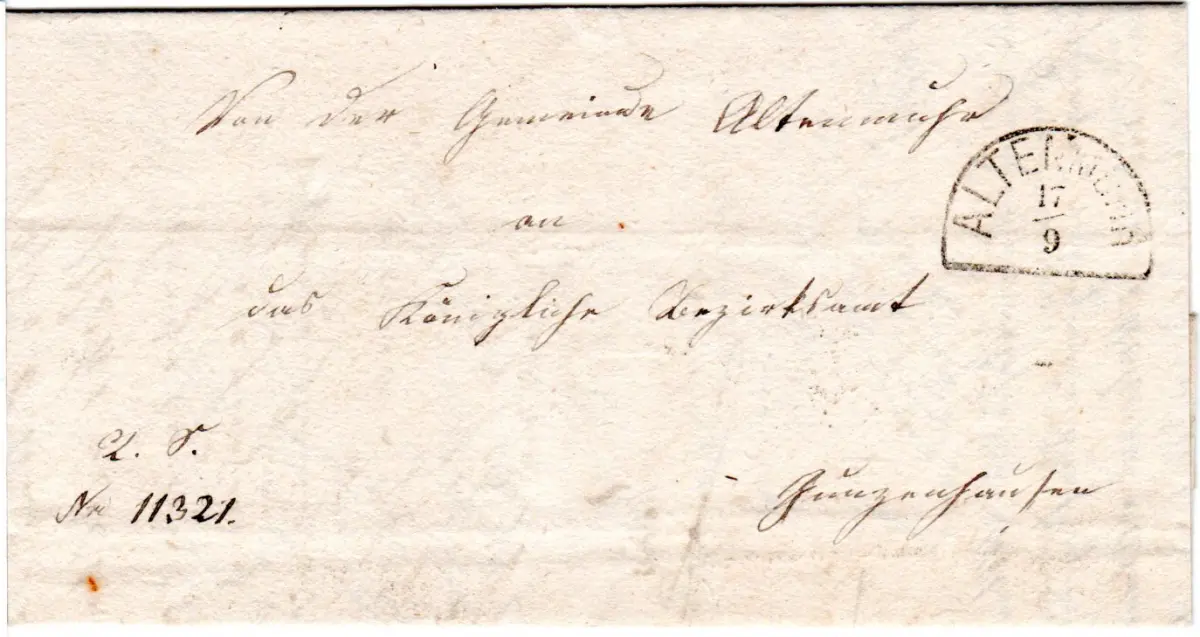 Von der Gemeinde Altenmuhr
ALTENMUHR
17
9
an
das Königliche Bezirksamt
R. S.
No 11321.
Gunzenhausen